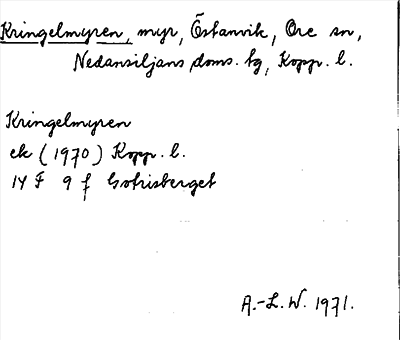 Kringelmyren, myr, Östanvik, Ore sn,
Nedansiljans doms. tg, Kopp. l.
Kringelmyren
ek (1970) Kopp. l.
14 F 9 f Gotrisberget
A.-L. W. 1971.